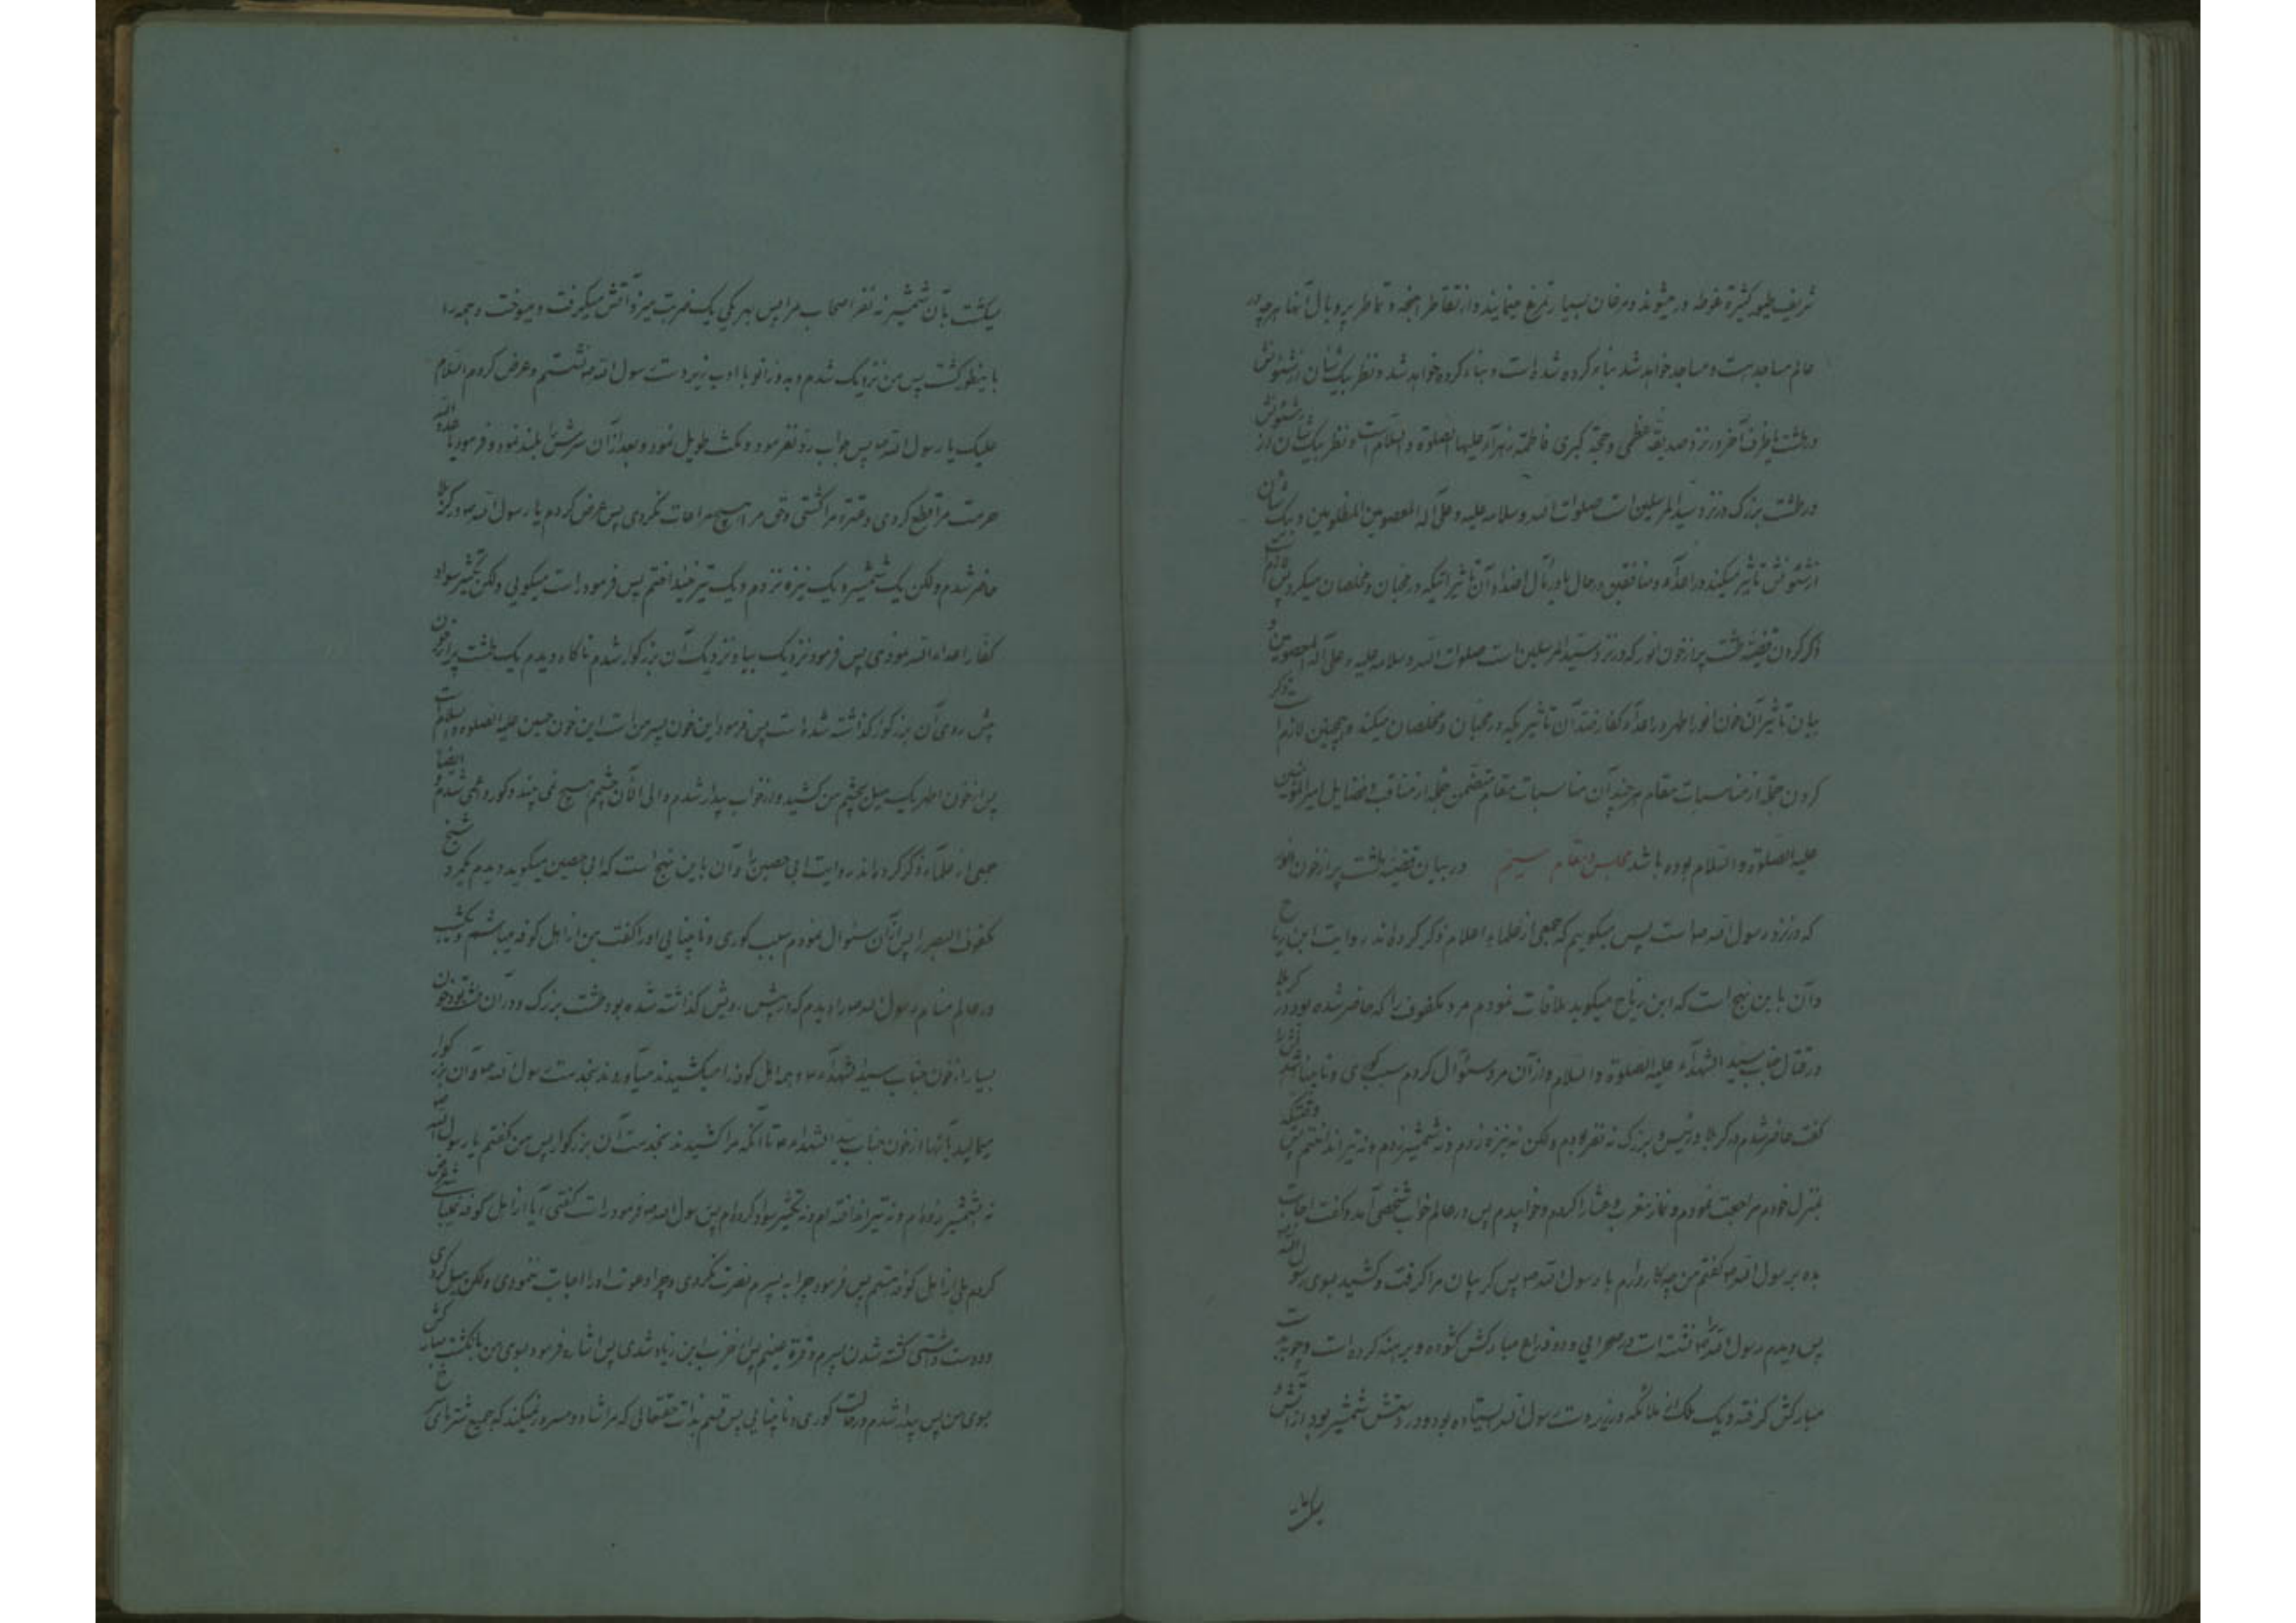 شریف طیور کثیرة غوطه ور میشوند و مرغان بسیار تمرغ مینمایند و از تقاطر اجنحه و تماطر پر و بال آنها هر چه در
عالم مساجد هست و مساجد خواهد شد بناء کرده شده است و بناء کرده خواهد شد و نظر بیک شأن از شئونش
در طشت یاقوت احمر در نزد صدیقه عظمی و حجة کبری فاطمه زهرآء علیها الصلوة و السلام است و نظر بیک شأن از شئونش
در طشت بزرگ در نزد سید المرسلین است صلوات الله و سلامه علیه و علی آله المعصومین المظلومین و بیک شأن
از شئونش تاثیر میکند در اعدآء و منافقین در حال باوراث اضداد آن تاثیراتیکه در محبان و مخلصان میکرد پس لازم است
ذکر کردن قضیه طشت پر از خون انور که در نزد سید المرسلین است صلوات الله و سلامه علیه و علی آله المعصومین و
بیان تاثیر آن خون انور اطهر در اعدآء و کفار ضد آن تاثیریکه در محبان و مخلصان میکند و همچنین لازم است ذکر
کردن جمله از مناسبات مقام هر چند آن مناسبات مقام متضمن جمله از مناقب و فضایل امیر المؤمنین
علیه الصلوة و السلام بوده باشد مجلس و مقام سیم در بیان قضیه طشت پر از خون انور
که در نزد رسول الله ص است پس میگوییم که جمعی از علماء اعلام ذکر کرده‌اند روایت ابن ریاح
و آن باین نهج است که ابن ریاح میگوید ملاقات نمودم مرد مکفوف را که حاضر شده بود در کربلا
در قتال جناب سید الشهدآء علیه الصلوة و السلام و از آن مرد سئوال کردم سبب کوری و نابینا شدنش را
گفت حاضر شدم در کربلا و رئیس و بزرگ نه نفر بودم ولکن نه نیزه زدم و نه شمشیر زدم و نه تیر انداختم پس وقتیکه
بمنزل خودم مراجعت نمودم و نماز مغرب و عشا را کردم و خوابیدم پس در عالم خواب شخصی آمد و گفت اجابت
بده بر رسول الله ص گفتم من چه کار دارم با رسول الله ص پس گریبان مرا گرفت و کشید بسوی رسول الله
پس دیدم رسول الله ص را نشسته است در صحرایی و دو ذراع مبارکش گشوده و برهنه کرده است و حربه بدست
مبارکش گرفته و یک ملک از ملائکه در زیر دست رسول الله ایستاده بود و در دستش شمشیر بود از آتش و
میکشت بآن شمشیر نه نفر اصحاب مرا پس بهر یکی یک ضربت میزد آتش میگرفت و میسوخت و همه را
باینطور کشت پس من نزدیک شدم و بدو زانو با ادب زیر دست رسول الله ص نشستم و عرض کردم السلام
علیک یا رسول الله ص پس جواب رد نفرمود و مکث طویل نمود و بعد از آن سرش را بلند نمود و فرمود یا عدو الله
حرمت مرا قطع کردی و عترة مرا کشتی و حق مرا هیچ مراعات نکردی پس عرض کردم یا رسول الله ص در کربلا
حاضر شدم ولکن یک شمشیر و یک نیزه نزدم و یک تیر نینداختم پس فرمود راست میگویی ولکن تکثیر سواد
کفار اعداء الله نمودی پس فرمود نزدیک بیا و نزدیک آن بزرگوار شدم ناگاه دیدم یک طشت پر از خون
پیش روی آن بزرگوار گذاشته شده است پس فرمود این خون پسر من است این خون حسین علیه الصلوة و السلام است
پس از خون اطهر یک میل بچشم من کشید و از خواب بیدار شدم و الی الآن چشمم هیچ نمی بیند و کور و اعمی شدم و ایضا
جمعی از علمآء ذکر کرده‌اند روایت ابی حصین را و آن باین نهج است که ابی حصین میگوید دیدم یکمرد شیخ
مکفوف البصر را پس از آن سئوال نمودم سبب کوری و نابینایی او را گفت من از اهل کوفه میباشم و یکشب
در عالم منام رسول الله ص را دیدم که در پیش رویش گذاشته شده بود طشت بزرگ و در آن طشت بود خون
بسیار از خون جناب سید الشهدآء ع و همه اهل کوفه را میکشیدند میآوردند بخدمت رسول الله ص و آن بزرگوار
میمالید بآنها از خون جناب سید الشهداء ع تا آنکه مرا کشیدند بخدمت آن بزرگوار پس من گفتم یا رسول الله ص
نه شمشیر زده‌ام و نه تیر انداخته ام و نه تکثیر سواد کرده‌ام پس رسول الله ص فرمود راست گفتی آیا از اهل کوفه نمیباشی عرض
کردم بلی از اهل کوفه هستم پس فرمود چرا به پسرم نصرت نکردی و چرا دعوت او را اجابت ننمودی ولکن میل کردی
و دوست داشتی کشته شدن پسرم و قرة عینم پس از حزب ابن زیاد شدی پس اشاره فرمود بسوی من با انگشت مبارکش
بسوی من پس بیدار شدم در حالت کوری و نابینایی پس قسم بذات حقتعالی که مرا شاد و مسرور نمیکند که جمیع شترهای سرخ